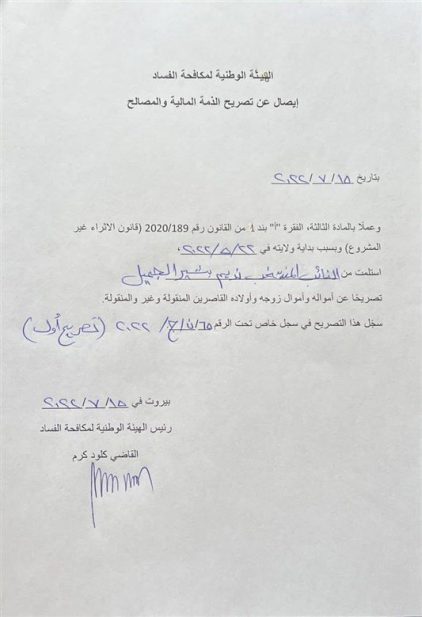 الهيئة الوطنية لمكافحة الفساد
إيصال عن تصريح الذمة المالية والمصالح
بتاريخ ١٥/٧/٢٠٢٢
وعملًا بالمادة الثالثة، الفقرة "أ" بند 1 من القانون رقم 2020/189 (قانون الاثراء غير
المشروع) وبسبب بداية ولايته في ٢٢/٥/٢٠٢٢،
استلمت من النائب المنتخب نديم بشير الجميل
تصريحًا عن أمواله وأموال زوجه وأولاده القاصرين المنقولة وغير والمنقولة.
سجّل هذا التصريح في سجل خاص تحت الرقم ٦٥/ن/ج/٢٠٢٢ (تصريح أول)
بيروت في ١٥/٧/٢٠٢٢
رئيس الهيئة الوطنية لمكافحة الفساد
القاضي كلود كرم